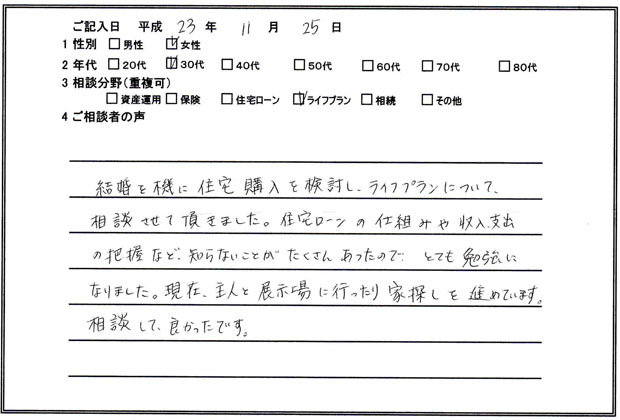 ご記入日 平成 23 年 11 月 25 日
1 性別 □男性 ☑女性
2 年代 □20代 ☑30代 □40代 □50代 □60代 □70代 □80代
3 相談分野(重複可)
□資産運用 □保険 □住宅ローン ☑ライフプラン □相続 □その他
4 ご相談者の声
結婚を機に住宅購入を検討し、ライフプランについて、
相談させて頂きました。住宅ローンの仕組みや収入、支出
の把握など、知らないことがたくさんあったので とても勉強に
なりました。現在、主人と展示場に行ったり家探しを進めています。
相談して、良かったです。